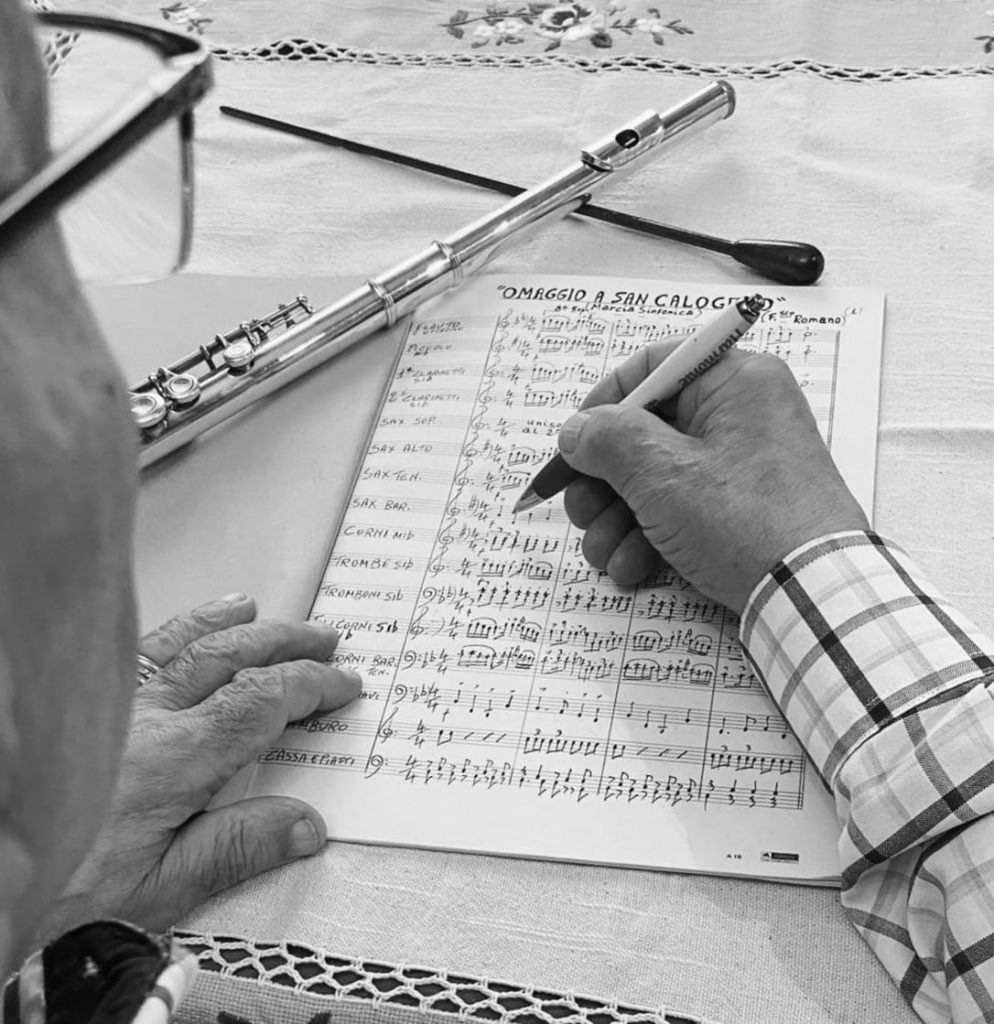 "OMAGGIO A SAN CALOGERO"
(Marcia Sinfonica)
(F.sco Romano)
FLAUTO
PICCOLO
1° CLARINETTI
SIb
2° CLARINETTI
SIb
SAX SOP.
unis.
al 2°
SAX ALTO
SAX TEN.
SAX BAR.
CORNI MIb
TROMBE SIb
TROMBONI SIb
CORNI SIb
CORNI BAR.
TEN.
TAMBURO
CASSA E PIATTI
A 18